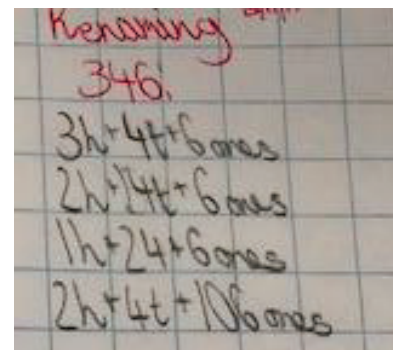 Renaming
346.
3h+4t+6ones
2h+14t+6ones
1h+24+6ones
2h+4t+106ones